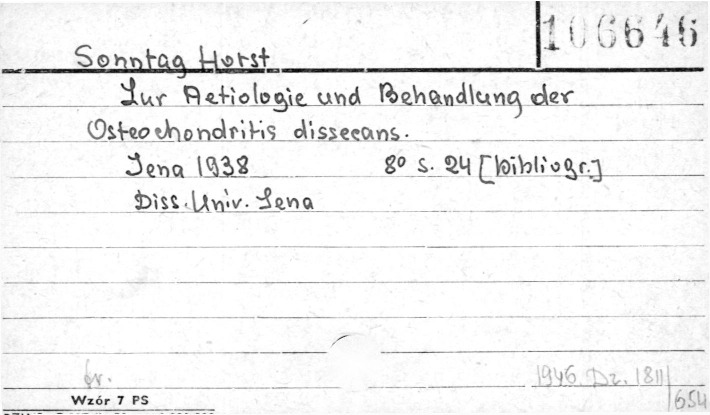 106646
Sonntag Horst
Zur Aetiologie und Behandlung der
Osteochondritis dissecans.
Jena 1938 8° s. 24 [bibliogr.]
Diss. Univ. Jena
fr.
1946. Dz. 1811/654
Wzór 7 PS